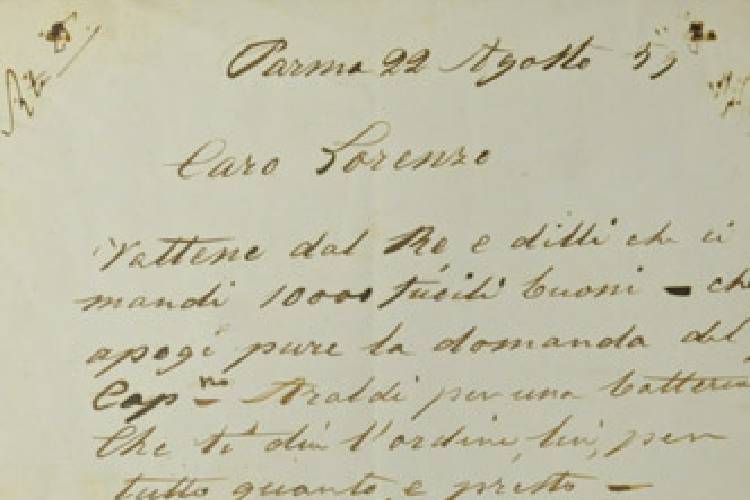 Parma 22 Agosto 59
Caro Lorenzo
Vattene dal Re e dilli che ci
mandi 10000 fucili buoni - che
apogi pure la domanda del
Cap.no Araldi per una batteria
Che ti dia l'ordine, lui, per
tutto quanto, e presto -